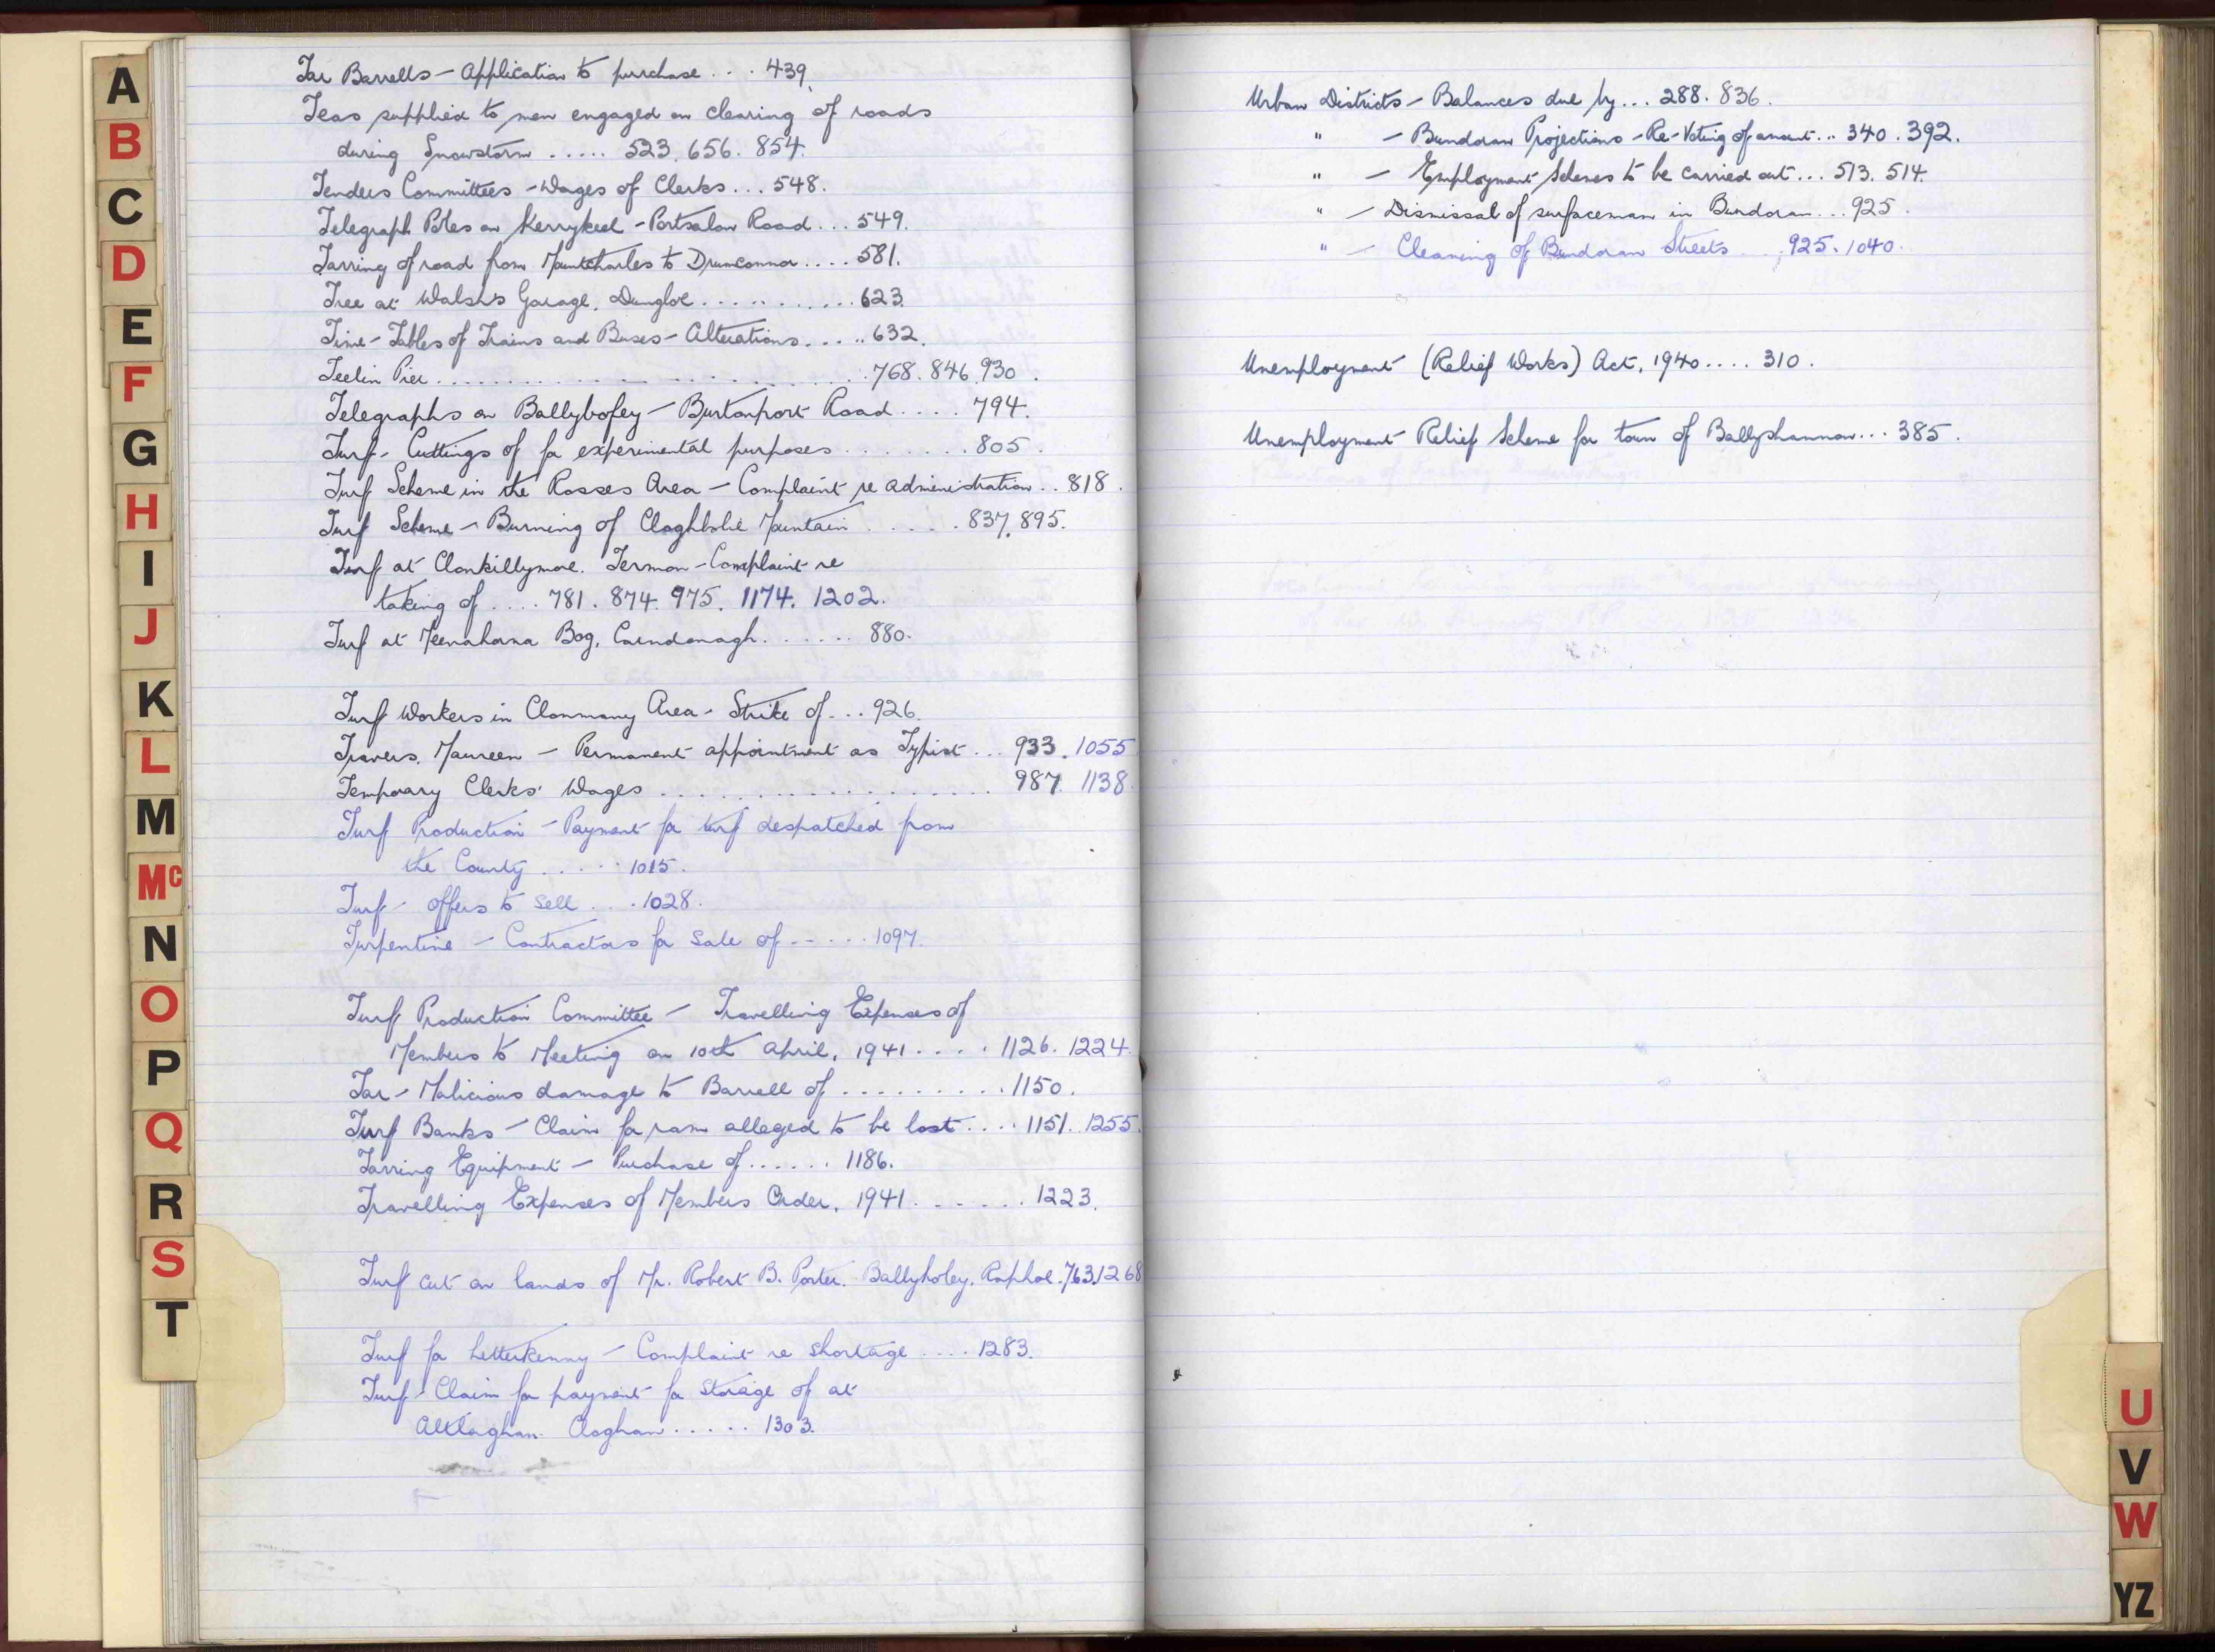 A
B
C
D
E
F
G
H
I
J
K
L
M
Mc
N
O
P
Q
R
S
T
Tar Barrells - Application to purchase ... 439.
Teas supplied to men engaged on clearing of roads
during Snowstorm ..... 523. 656. 854.
Tenders Committees - Wages of Clerks ... 548.
Telegraph Poles on Kerrykeel - Portsalon Road ... 549.
Tarring of road from Mountcharles to Drumconnor .... 581.
Tree at Walsh's Garage, Dungloe ........... 623.
Time-Tables of Trains and Buses - Alterations ..... 632.
Teelin Pier ........................ 768. 846. 930.
Telegraphs on Ballybofey - Burtonport Road .... 794.
Turf - Cuttings of for experimental purposes ........ 805.
Turf Scheme in the Rosses Area - Complaint re administration .. 818.
Turf Scheme - Burning of Mountain ..... 837. 895.
Turf at Clonkillymore. Termon - Complaint re
taking of .... 781. 874. 975. 1174. 1202.
Turf at Meenahama Bog, Carndonagh ...... 880.
Turf Workers in Clonmany Area - Strike of ... 926.
Travers, Maureen - Permanent appointment as Typist ... 933. 1055
Temporary Clerks' Wages .................. 987. 1138
Turf Production - Payment for turf despatched from
the County ..... 1015.
Turf - offers to sell ... 1028.
Turpentine - Contractors for sale of ..... 1097.
Turf Production Committee - Travelling Expenses of
Members to Meeting on 10th April, 1941 .... 1126. 1224.
Tar - Malicious damage to Barrell of ......... 1150.
Turf Banks - Claim for ram alleged to be lost .... 1151. 1255.
Tarring Equipment - Purchase of ...... 1186.
Travelling Expenses of Members Order, 1941 ...... 1223.
Turf cut on lands of Mr. Robert B. Porter. Ballyholey. Raphoe. 763. 1268
Turf for Letterkenny - Complaint re shortage .... 1283.
Turf - Claim for payment for storage of at
Altlaghan. Cloghan ..... 1303.
Urban Districts - Balances due by ... 288. 836.
" - Bundoran Projections - Re-Voting of amount ... 340. 392.
" - Employment Schemes to be carried out ... 513. 514.
" - Dismissal of surfaceman in Bundoran ... 925.
" - Cleaning of Bundoran Streets ... 925. 1040.
Unemployment (Relief Works) Act, 1940 .... 310.
Unemployment Relief Scheme for town of Ballyshannon ... 385.
U
V
W
YZ